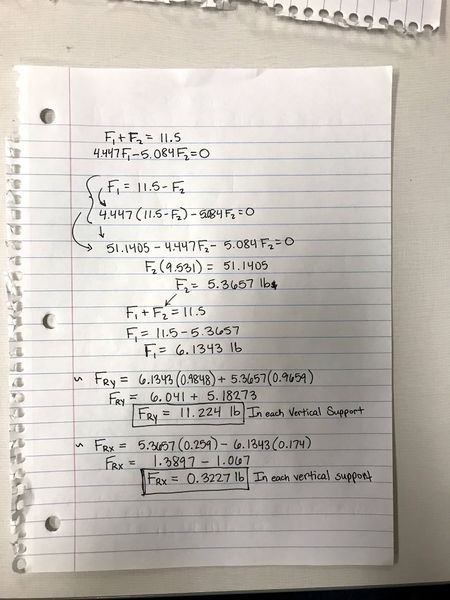 F₁ + F₂ = 11.5
4.447F₁ - 5.084F₂ = 0
F₁ = 11.5 - F₂
4.447(11.5 - F₂) - 5.084F₂ = 0
51.1405 - 4.447F₂ - 5.084F₂ = 0
F₂(9.531) = 51.1405
F₂ = 5.3657 lb
F₁ + F₂ = 11.5
F₁ = 11.5 - 5.3657
F₁ = 6.1343 lb
~ FRy = 6.1343(0.9848) + 5.3657(0.9659)
FRy = 6.041 + 5.18273
FRy = 11.224 lb In each Vertical Support
~ FRx = 5.3657(0.259) - 6.1343(0.174)
FRx = 1.3897 - 1.067
FRx = 0.3227 lb In each vertical support